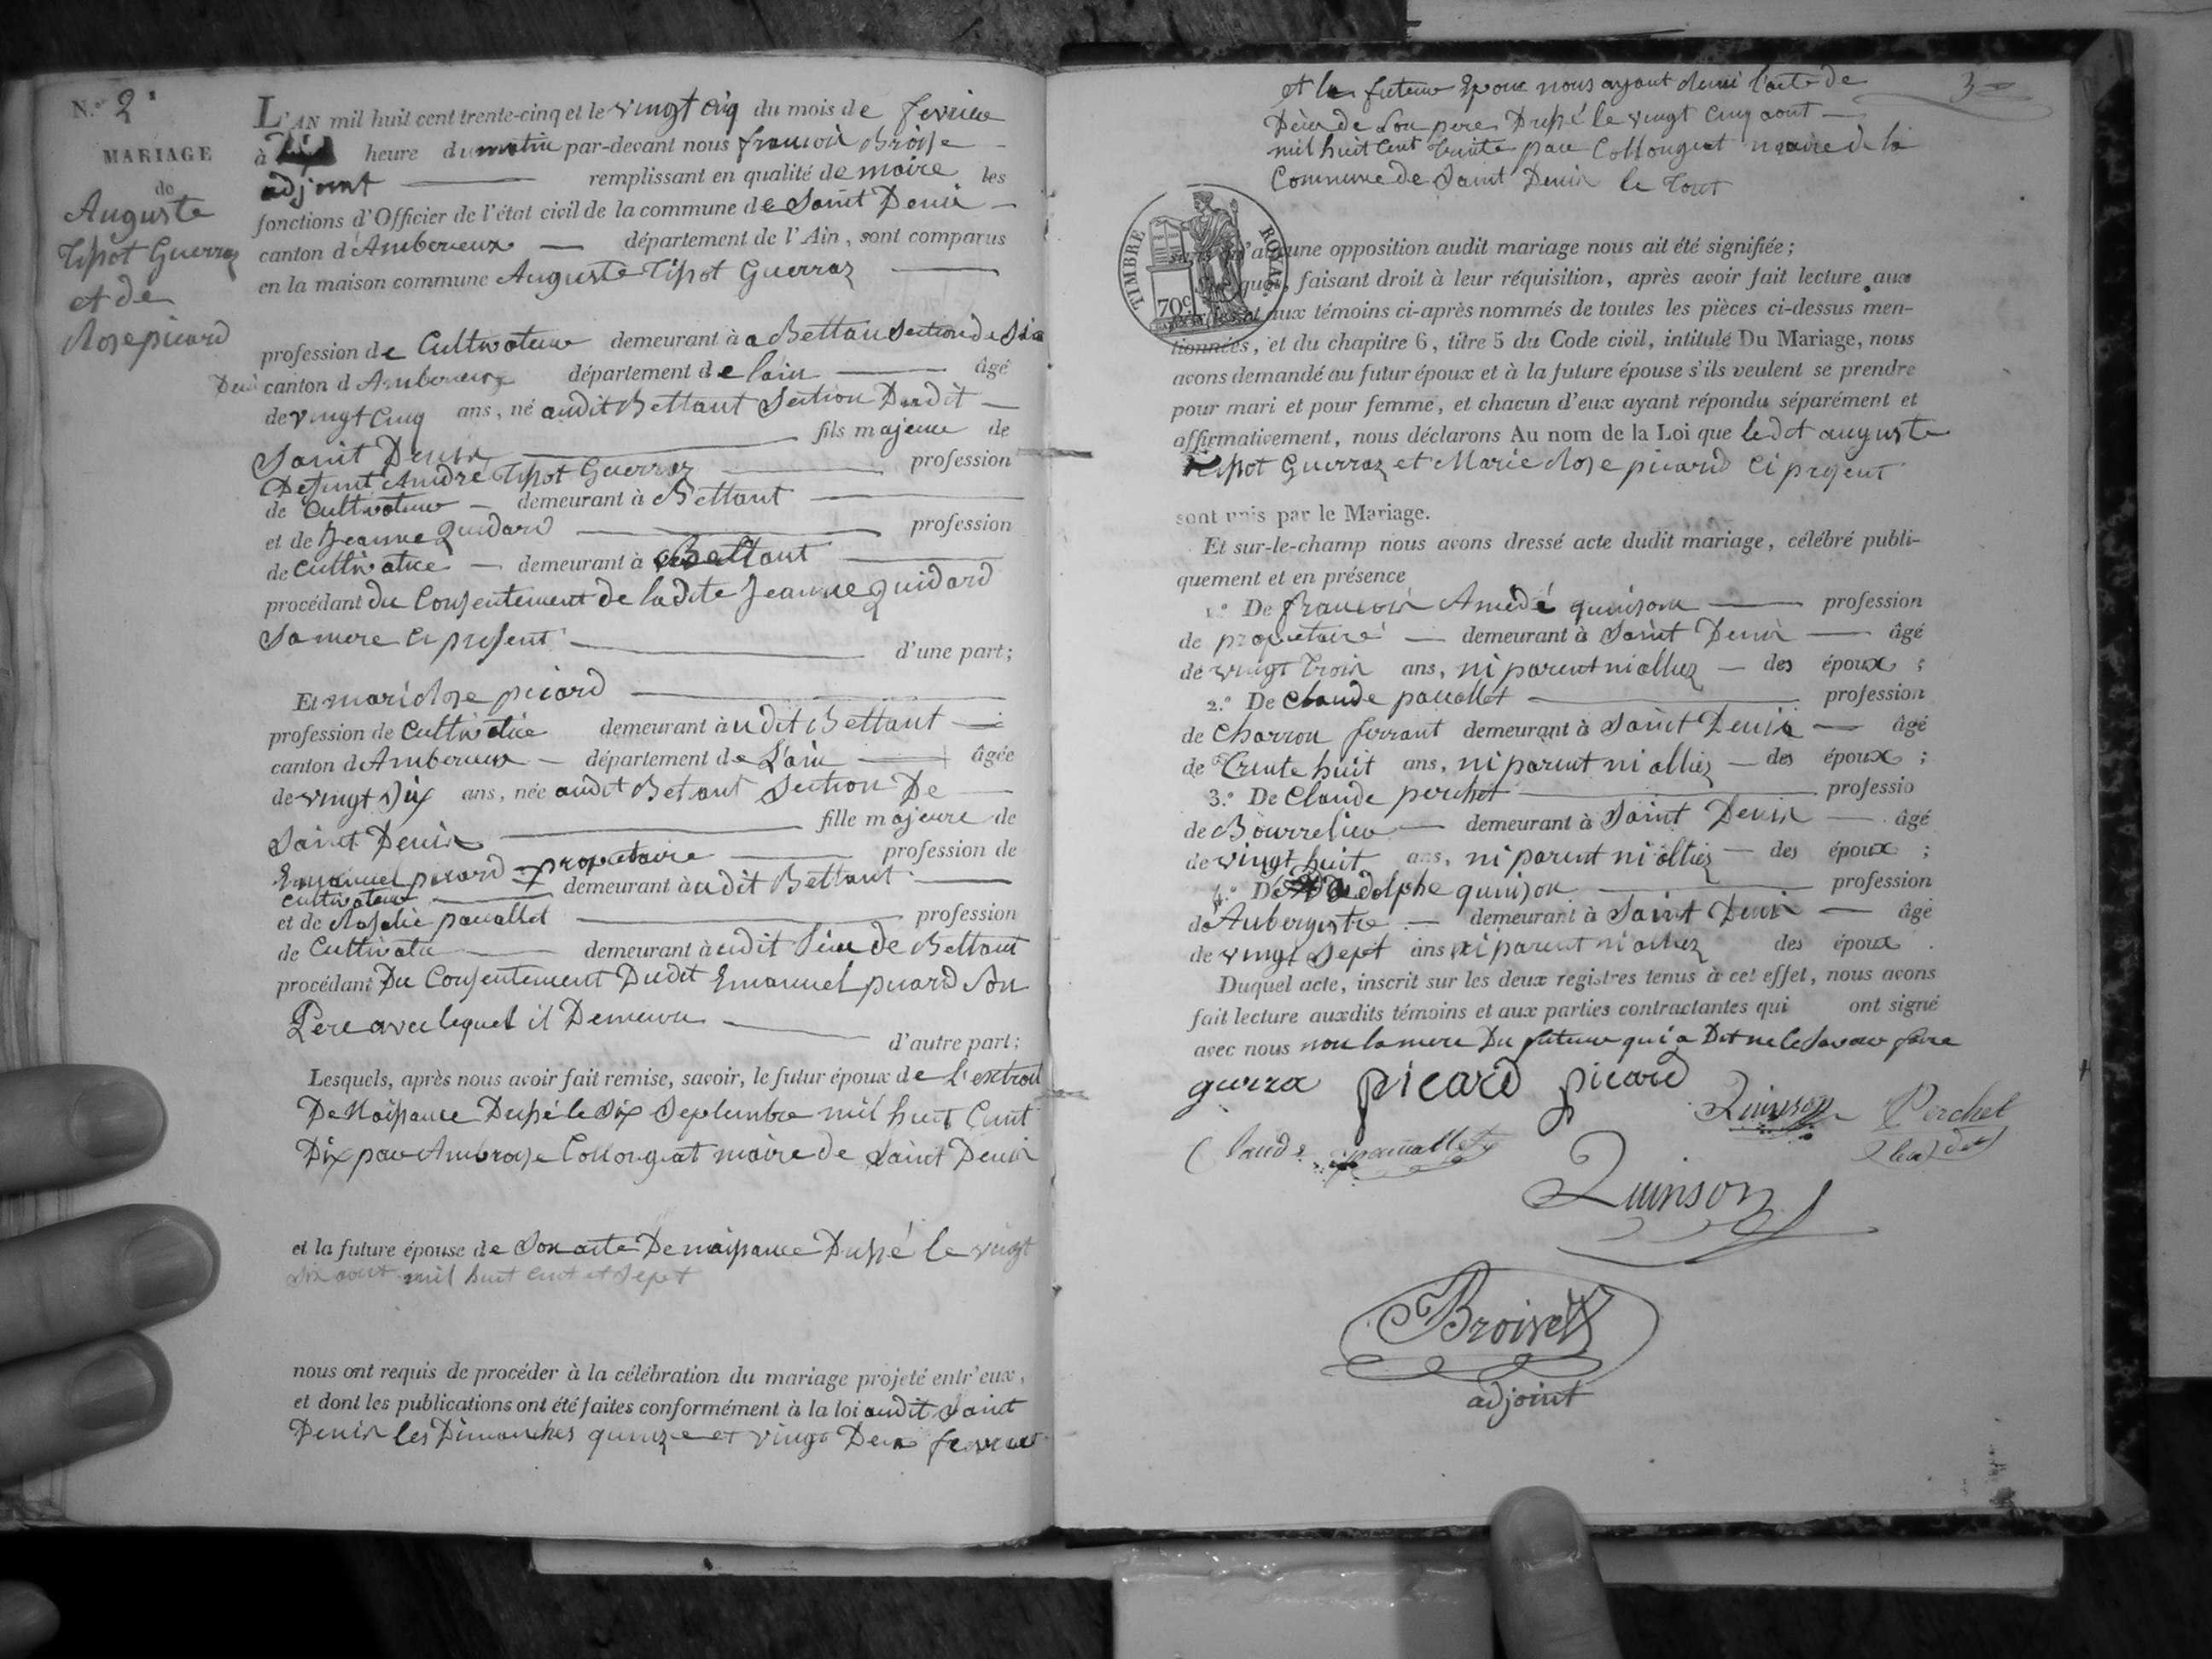 N.º 2
MARIAGE
de
Auguste
Tissot Guerraz
et de
Rose picard
L'AN mil huit cent trente-cinq et le vingt cinq du mois de fevrier
à heure du matin par-devant nous francois
adjoint remplissant en qualité de maire les
fonctions d'Officier de l'état civil de la commune de Saint Denis
canton d'Amberieux département de l'Ain, sont comparus
en la maison commune Auguste Tissot Guerraz
profession de Cultivateur demeurant à a Bettan Section de
Denis canton d Amberieux département de lain âgé
de vingt Cinq ans, né audit Bettant Section Dudit
Saint Denis fils majeur de
Defunt André Tissot Guerraz profession
de Cultivateur demeurant à Bettant
et de Jeanne Quidard profession
de cultivatrice demeurant à Bettant
procédant du Consentement de ladite Jeanne Quidard
Sa mere ci present d'une part;
Et marie Rose picard
profession de Cultivatrice demeurant à udit Bettant
canton d Amberieux département de L'ain âgée
de vingt Six ans, née audit Betant Section De
Saint Denis fille majeure de
Emanuel picard propriétaire profession de
cultivateur demeurant à udit Bettant
et de Rosalie pauallet profession
de Cultivatr demeurant à udit lieu de Bettant
procédant Du Consentement Dudit Emanuel picard Son
Pere avec lequel il Demeure d'autre part;
Lesquels, après nous avoir fait remise, savoir, le futur époux de L'extrait
De Naissance Dressé le Six Septembre mil huit Cent
Dix par Ambroise Collongeat maire de Saint Denis
et la future épouse de Son acte De naissance Dressé le vingt
Six aout mil huit cent et Sept
nous ont requis de procéder à la célébration du mariage projeté entr'eux,
et dont les publications ont été faites conformément à la loi audit Saint
Denis les Dimanches quinze et vingt Deux fevrier
3
et le futur Epoux nous ayant remi l'acte de
Déces de Son pere Dressé le vingt Cinq aout
mil huit Cent trente par Collongeat maire de la
Commune de Saint Denis le tout
TIMBRE ROYAL
70c
qu'aucune opposition audit mariage nous ait été signifiée;
quoi, faisant droit à leur réquisition, après avoir fait lecture aux
aux témoins ci-après nommés de toutes les pièces ci-dessus men-
tionnées, et du chapitre 6, titre 5 du Code civil, intitulé Du Mariage, nous
avons demandé au futur époux et à la future épouse s'ils veulent se prendre
pour mari et pour femme, et chacun d'eux ayant répondu séparément et
affirmativement, nous déclarons Au nom de la Loi que ledit auguste
Tissot Guerraz et Marie Rose picard Ci présent
sont unis par le Mariage.
Et sur-le-champ nous avons dressé acte dudit mariage, célébré publi-
quement et en présence
1.º De francois Amédé quinson profession
de propriétaire demeurant à Saint Denis âgé
de vingt trois ans, ni parent ni alliez des époux;
2.º De Claude pauallet profession
de Charron ferrant demeurant à Saint Denis âgé
de Trente huit ans, ni parent ni alliez des époux;
3.º De Claude perchet professio
de Bourrelier demeurant à Saint Denis âgé
de vingt huit ans, ni parent ni alliez des époux;
4.º De Adolphe quinson profession
de Aubergiste demeurant à Saint Denis âgé
de vingt Sept ans ni parent ni alliez des époux.
Duquel acte, inscrit sur les deux registres tenus à cet effet, nous avons
fait lecture auxdits témoins et aux parties contractantes qui ont signé
avec nous non la mere Du futur qui a Dit ne le Savoir faire
guerra picard picard
Quinson Perchet
Claude pauallet
Quinson
Broiset
adjoint